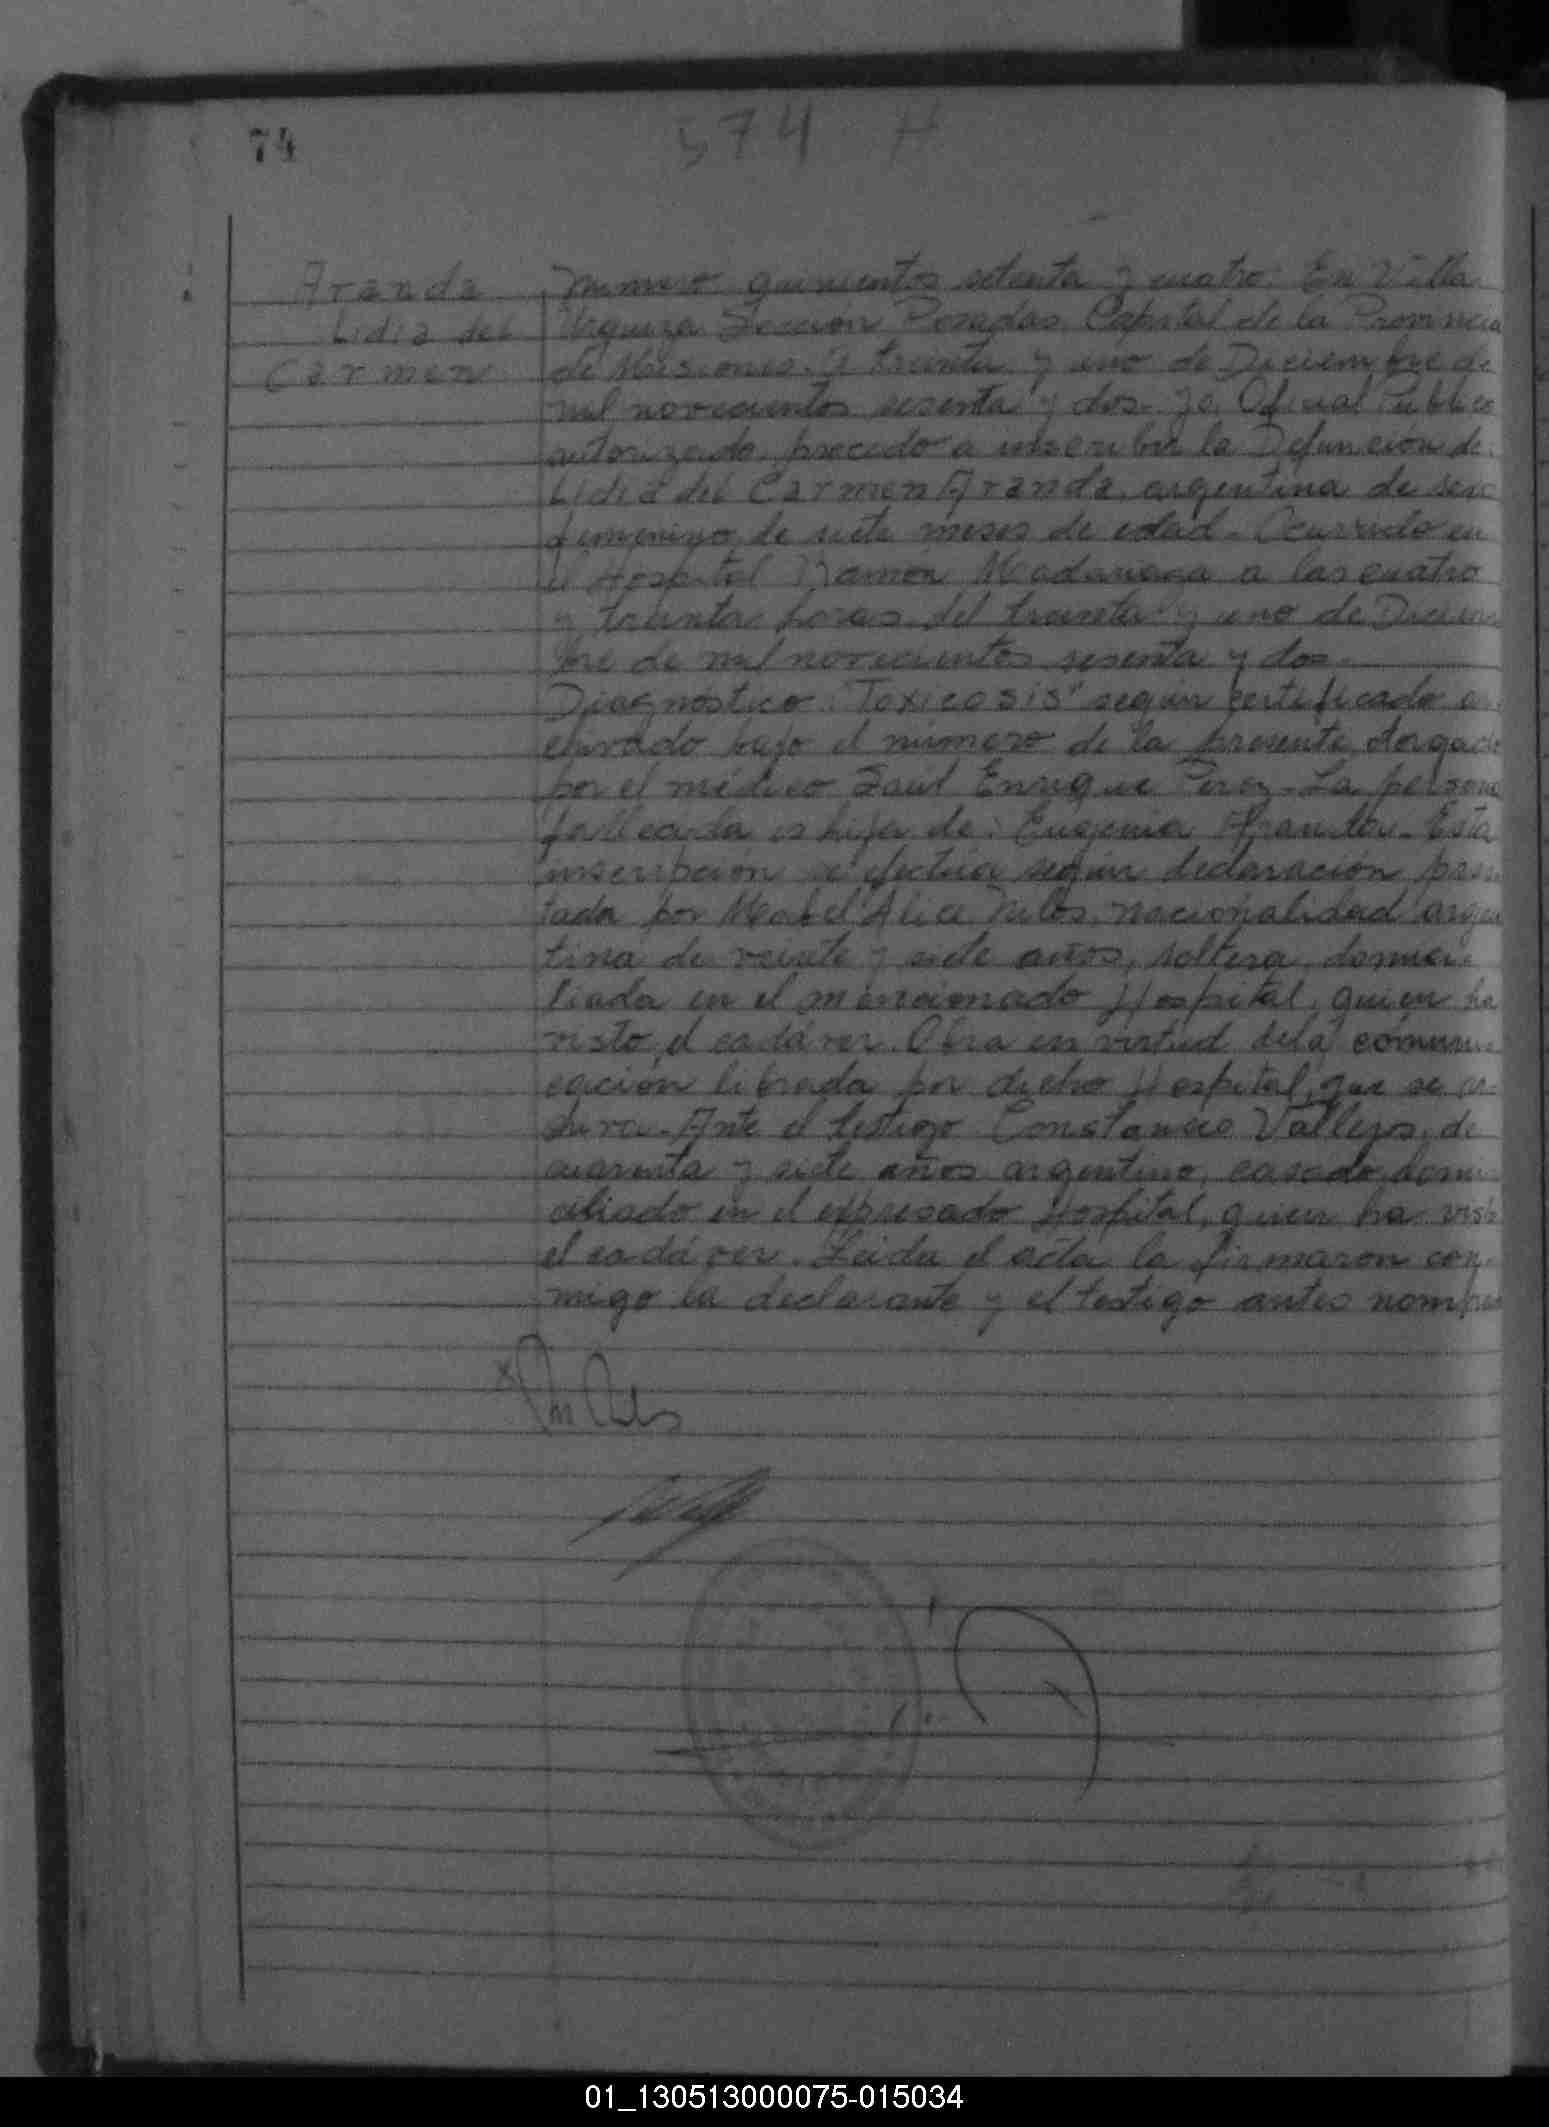 74
574 H
Aranda
Lidia del
Carmen
Numero quinientos setenta y cuatro. En Villa
Urquiza Sección Posadas, Capital de la Provincia
de Misiones. A treinta y uno de Diciembre de
mil novecientos sesenta y dos. Yo, Oficial Publico
autorizado, procedo a inscribir la Defunción de:
Lidia del Carmen Aranda, argentina de sexo
femenino, de siete meses de edad. Ocurrido en
el Hospital Ramón Madariaga a las cuatro
y treinta horas del treinta y uno de Diciem
bre de mil novecientos sesenta y dos.
Diagnóstico: "Toxicosis" según certificado ar
chivado bajo el número de la presente, otorgado
por el médico Saul Enrique Perez. La persona
fallecida es hija de: Eugenia Aranda. Esta
inscripción se efectúa según declaración presen
tada por Mabel Alice nacionalidad argen
tina de veinte y siete años, soltera, domici-
liada en el mencionado Hospital, quien ha
visto el cadáver. Obra en virtud de la comuni-
cación librada por dicho Hospital, que se ar-
chiva. Ante el testigo Constancio Vallejos, de
cuarenta y siete años argentino, casado, domi
ciliado en el expresado Hospital, quien ha visto
el cadáver. Leida el acta la firmaron con-
migo la declarante y el testigo antes nombrado
01_130513000075-015034